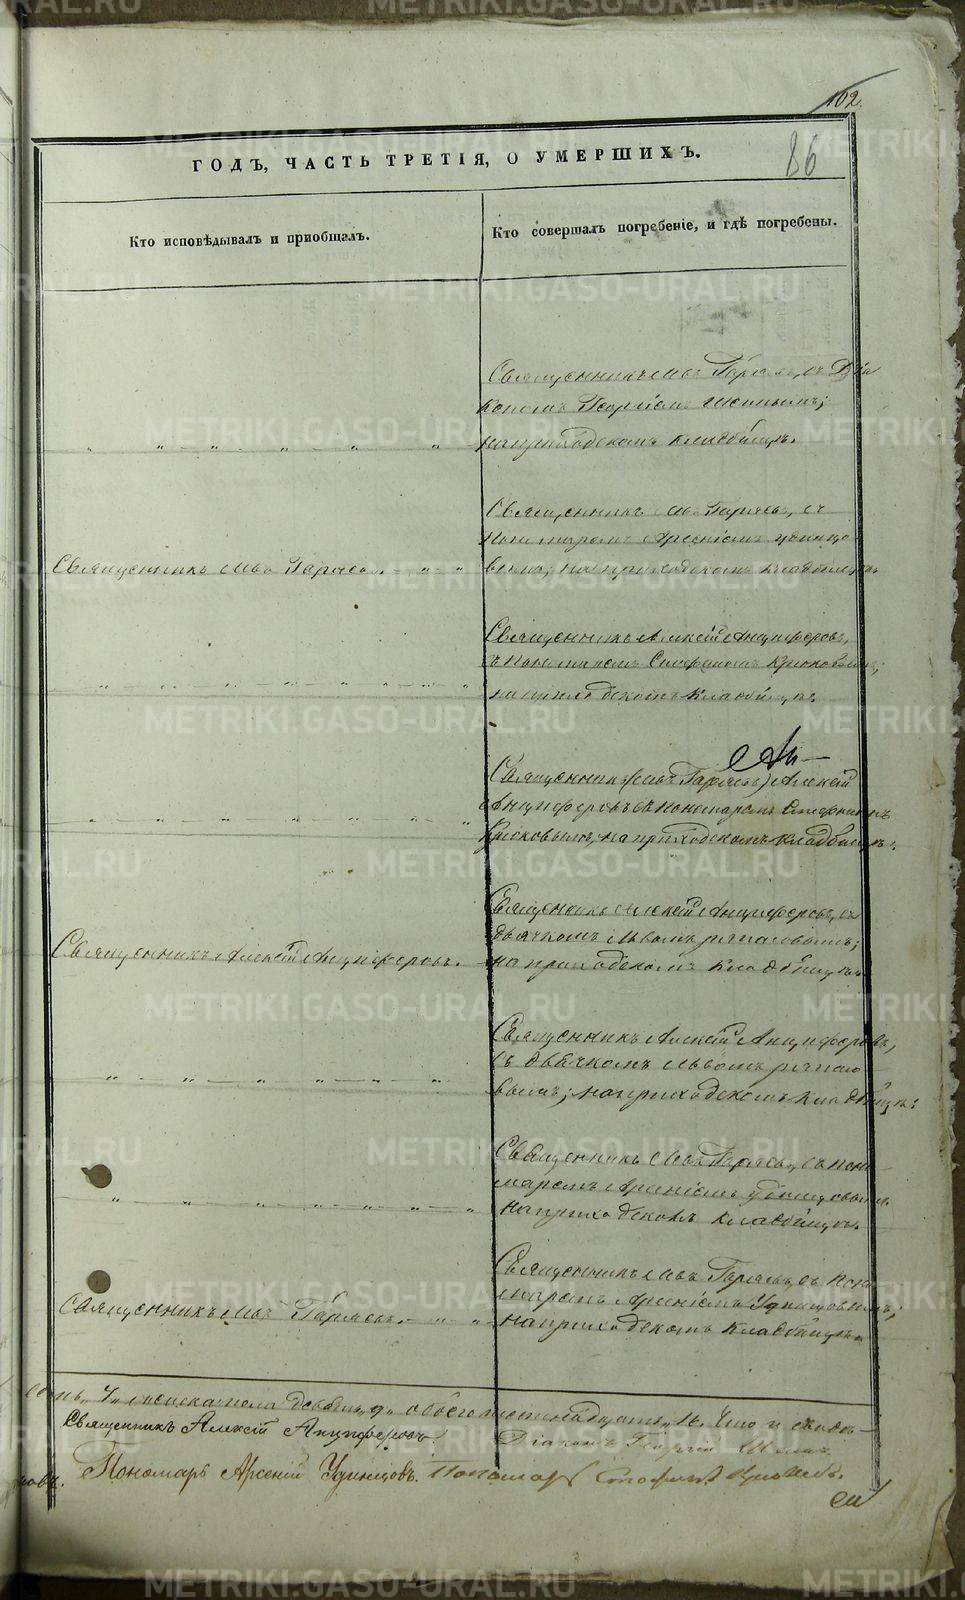 102.
86
ГОДЪ, ЧАСТЬ ТРЕТІЯ, О УМЕРШИХЪ.
Кто исповѣдывалъ и пріобщалъ.
Кто совершалъ погребеніе, и гдѣ погребены.
Священникъ Левъ Гаряевъ, съ Діа
кономъ Георгіемъ
на приходскомъ кладбищѣ.
Священникъ Левъ Гаряевъ.
Священникъ Левъ Гаряевъ, съ
Пономаремъ Арсеніемъ Удинцо
вымъ; на приходскомъ кладбищѣ.
Священникъ Алексій Анциферовъ,
съ пономаремъ Стефаномъ Крюковымъ;
на приходскомъ кладбищѣ.
Священникъ (Левъ Гаряевъ) Алексій
Анциферовъ съ пономаремъ Стефаномъ
Крюковымъ, на приходскомъ кладбищѣ.
Священникъ Алексій Анциферовъ.
Священникъ Алексій Анциферовъ, съ
дьячкомъ Львомъ
на приходскомъ кладбищѣ.
Священникъ Алексій Анциферовъ,
съ дьячкомъ Львомъ
вымъ; на приходскомъ кладбищѣ.
Священникъ Левъ Гаряевъ, съ поно
маремъ Арсеніемъ Удинцовымъ
на приходскомъ кладбищѣ.
Священникъ Левъ Гаряевъ.
Священникъ Левъ Гаряевъ, съ поно
маремъ Арсеніемъ Удинцовымъ;
на приходскомъ кладбищѣ.
семь „7„ женска пола девять „9„ обоего шестнадцать „16.
Священникъ Алексій Анциферовъ.
Діаконъ Георгій
Пономарь Арсеній Удинцовъ. Пономарь Стефанъ Крюковъ.
METRIKI.GASO-URAL.RU